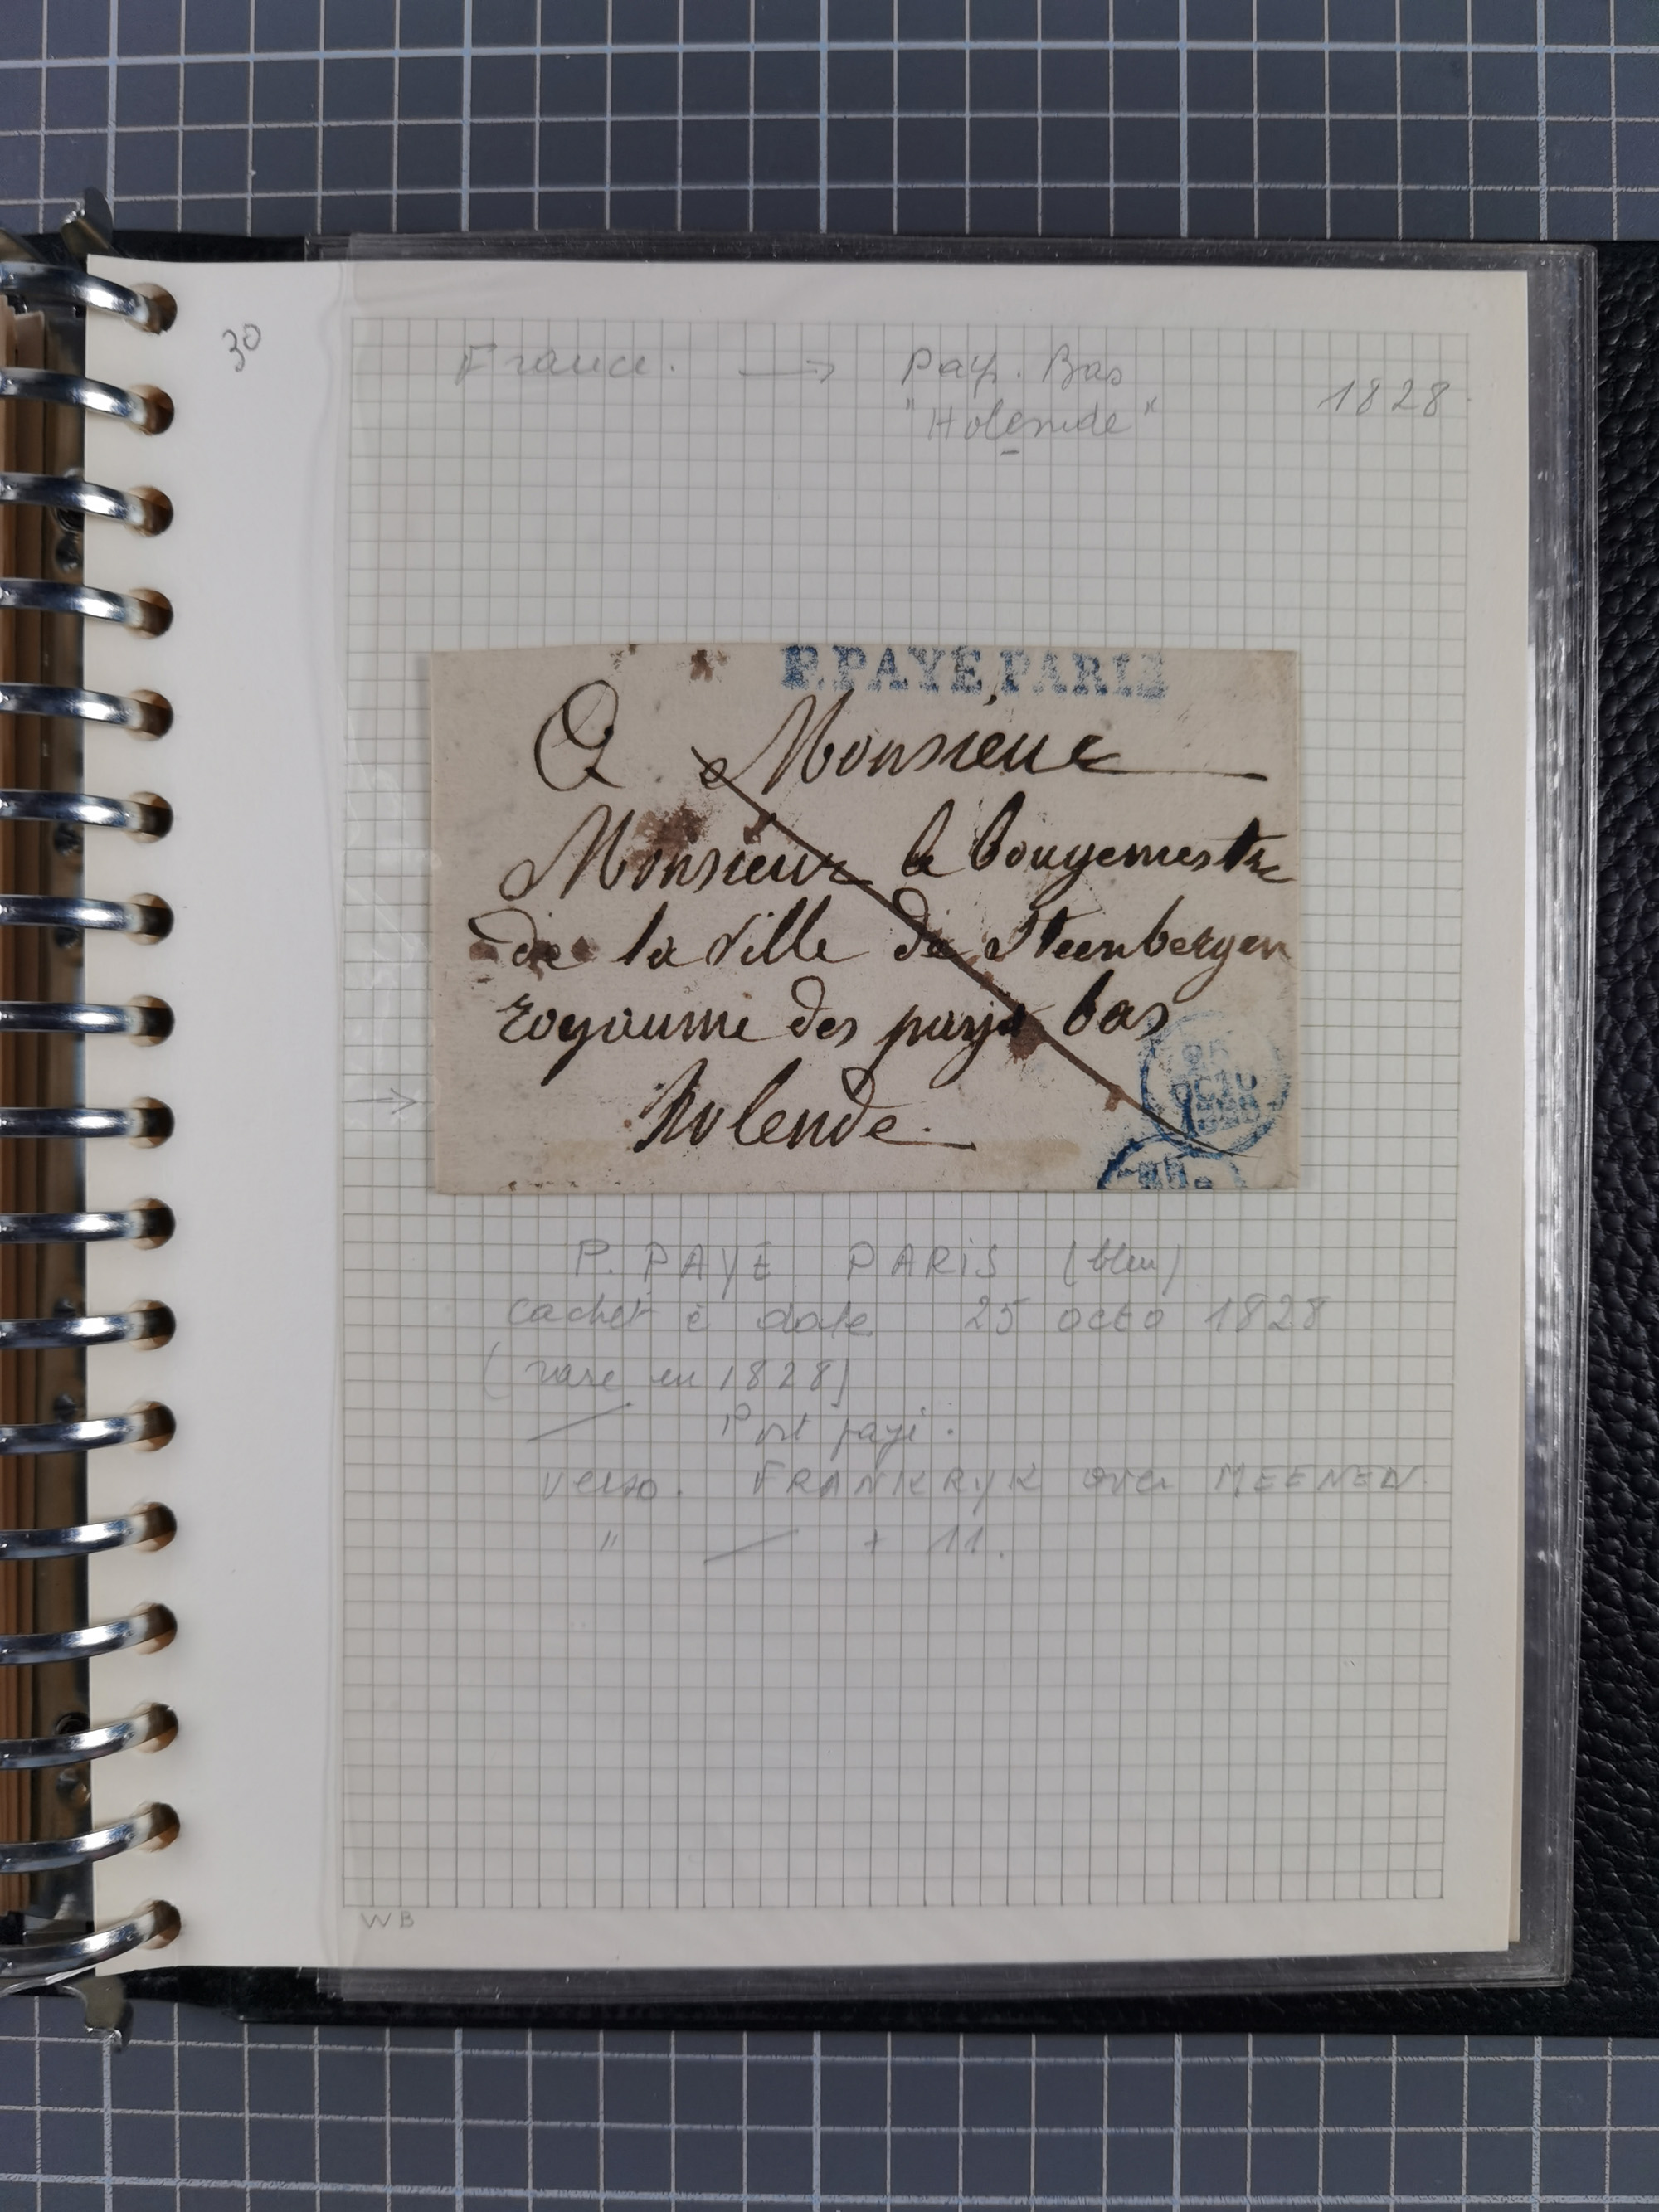 30
France. → Pays. Bas
"Holende"
1828
P.PAYÉ,PARIS
A Monsieur
Monsieur le bougemestre
de la ville de Steenbergen
royaume des pays bas
holende.
25
OCTO
1828
P. PAYÉ PARIS (bleu)
cachet à date 25 octo 1828
(rare en 1828)
/ Port payé.
verso. FRANKRYK over MEENEN.
" / + 11.
WB